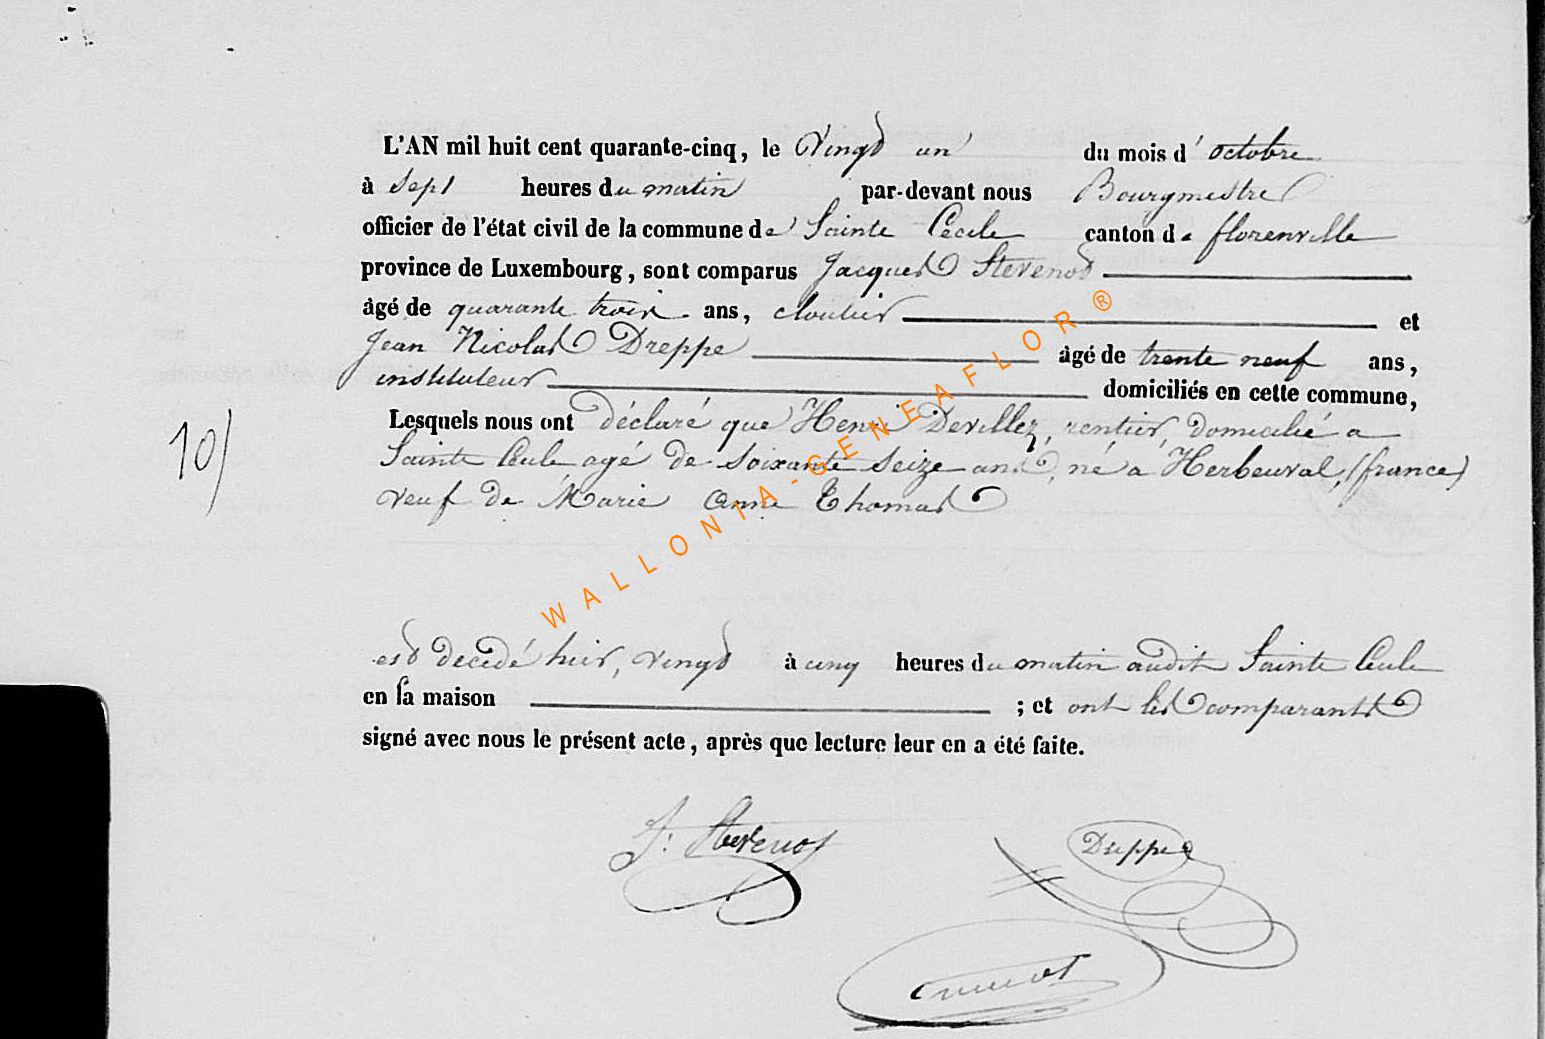 L'AN mil huit cent quarante-cinq, le vingt un du mois d'octobre
à sept heures du matin par-devant nous Bourgmestre
officier de l'état civil de la commune de Sainte Cécile canton de florenville
province de Luxembourg, sont comparus Jacques Stevenot
âgé de quarante trois ans, cloutier et
Jean Nicolas Dreppe âgé de trente neuf ans,
instituteur domiciliés en cette commune,
Lesquels nous ont déclaré que Henri Devillez, rentier, domicilié a
10)
Sainte Cécile agé de soixante seize ans, né a Herbeuval, (france)
veuf de Marie Anne Thomas
est décédé hier, vingt à cinq heures du matin audit Sainte Cécile
en sa maison ; et ont les comparants
signé avec nous le présent acte, après que lecture leur en a été faite.
J: Stevenot
Dreppe
WALLONIA-GENEAFLOR®